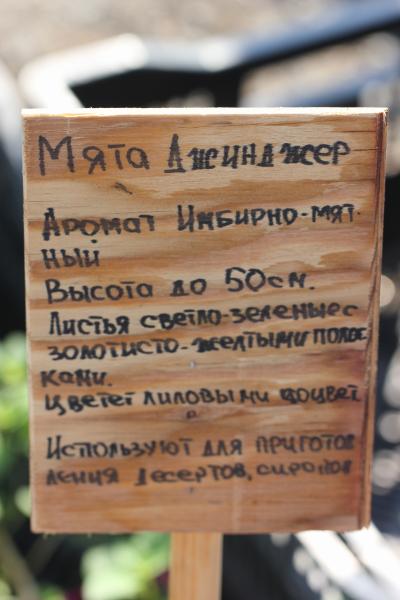 Мята Джинджер
Аромат Имбирно-мят-
ный
Высота до 50см.
Листья светло-зеленые с
золотисто-желтыми полос
ками.
Цветет лиловыми
Используют для приготов
ления десертов, сиропов